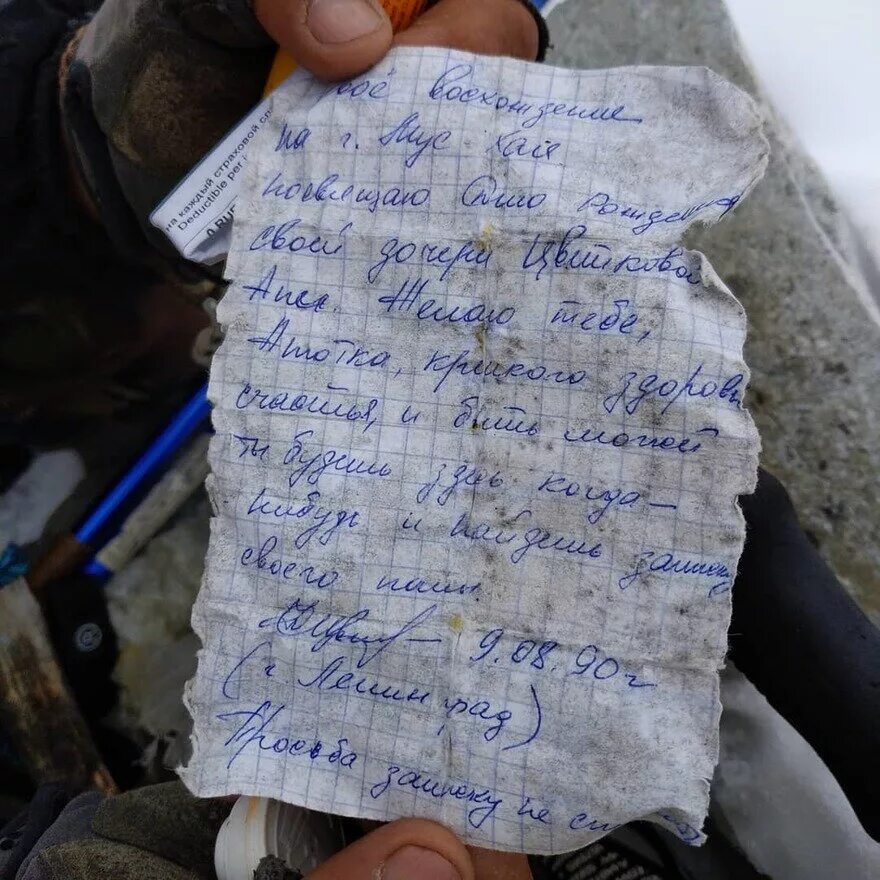 на каждый страховой сл
Deductible per
0 RU
воё восхождение
на г. Мус Хая
посвящаю Дню Рождения
своей дочери Цветковой
Анне. Желаю тебе,
Анютка, крепкого здоровья
счастья, и быть может
ты будешь здесь когда-
нибудь и найдешь записку
своего папы.
9.08.90г
(г Ленинград)
Просьба записку не